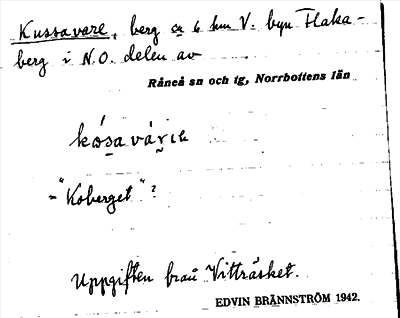 Kussavare, berg ca 6 km V. byn Flaka-
berg i N.O. delen av
Råneå sn och tg, Norrbottens län
kósavàrικ
= "Koberget"?
Uppgiften från Vitträsket.
EDVIN BRÄNNSTRÖM 1942.